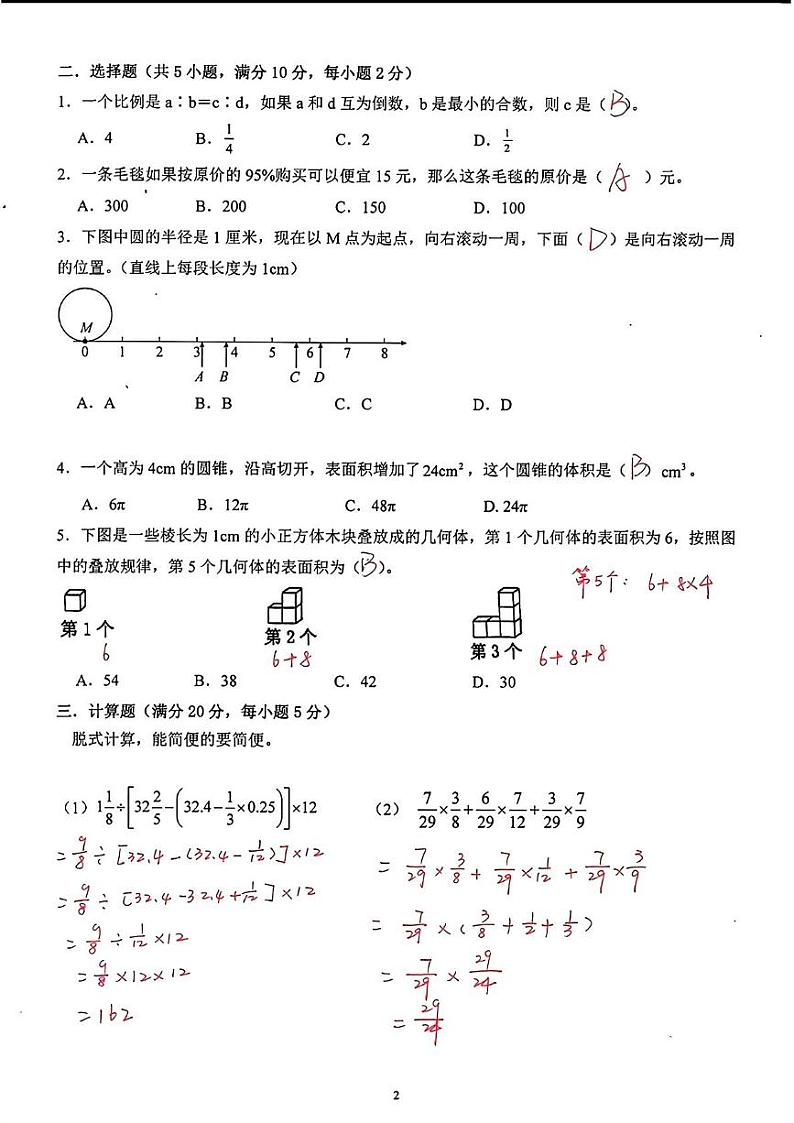 二．选择题（共 5 小题，满分 10 分，每小题 2 分）
1．一个比例是 a∶b＝c∶d，如果 a 和 d 互为倒数，b 是最小的合数，则 c 是（ B ）。
A．4 B．1/4 C．2 D．1/2
2．一条毛毯如果按原价的 95%购买可以便宜 15 元，那么这条毛毯的原价是（ A ）元。
A．300 B．200 C．150 D．100
3．下图中圆的半径是 1 厘米，现在以 M 点为起点，向右滚动一周，下面（ D ）是向右滚动一周
的位置。（直线上每段长度为 1cm）
M
0 1 2 3 4 5 6 7 8
A B C D
A．A B．B C．C D．D
4．一个高为 4cm 的圆锥，沿高切开，表面积增加了 24cm²，这个圆锥的体积是（ B ）cm³。
A．6π B．12π C．48π D. 24π
5．下图是一些棱长为 1cm 的小正方体木块叠放成的几何体，第 1 个几何体的表面积为 6，按照图
中的叠放规律，第 5 个几何体的表面积为（ B ）。
第5个： 6+8×4
第 1 个 第 2 个 第 3 个
6 6+8 6+8+8
A．54 B．38 C．42 D．30
三．计算题（满分 20 分，每小题 5 分）
脱式计算，能简便的要简便。
（1）1 1/8÷[32 2/5−(32.4−1/3×0.25)]×12 （2） 7/29×3/8+6/29×7/12+3/29×7/9
= 9/8 ÷ [32.4-(32.4-1/12)]×12
= 9/8 ÷ [32.4-32.4+1/12]×12
= 9/8 ÷ 1/12 ×12
= 9/8 ×12×12
=162
= 7/29 × 3/8 + 7/29 × 1/12 + 7/29 × 3/9
= 7/29 ×(3/8 + 1/2 + 1/3)
= 7/29 × 29/24
= 29/24
2